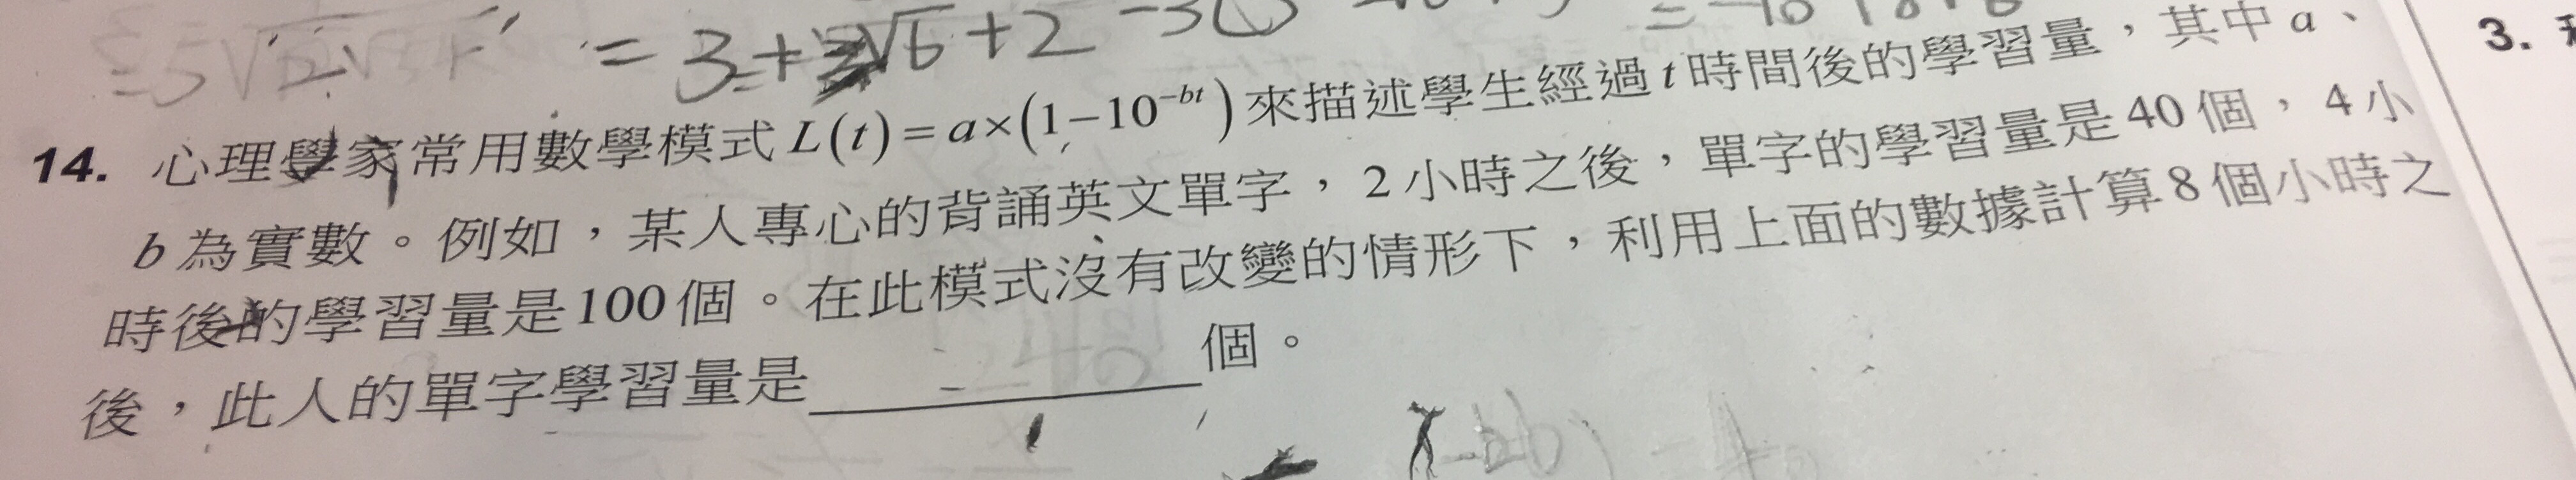 = 3 + 3√6 + 2 - 3
14. 心理學家常用數學模式 L(t) = a×(1-10^{-bt}) 來描述學生經過 t 時間後的學習量，其中 a、
b 為實數。例如，某人專心的背誦英文單字，2 小時之後，單字的學習量是 40 個，4 小
時後的學習量是 100 個。在此模式沒有改變的情形下，利用上面的數據計算 8 個小時之
後，此人的單字學習量是＿＿＿＿＿＿個。
3.